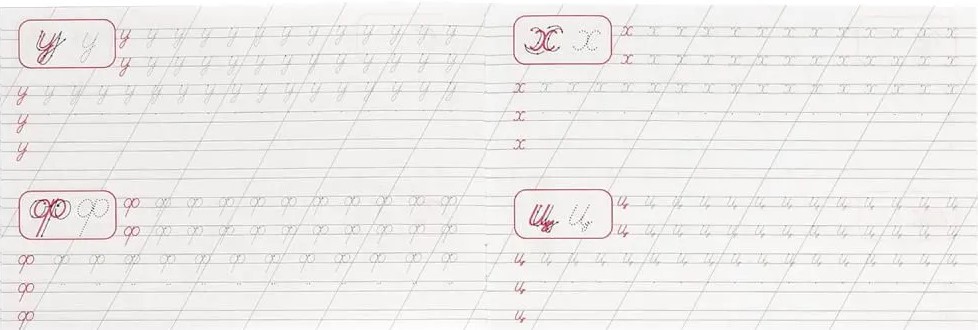 у у
у у у у у у у у у у у у
у у у у у у у у у у у у у
у у у у у у у у у у у у у у у у у
у
у
х х
х х х х х х х х х х х х х
х х х х х х х х х х х х х
х х х х х х х х х х х х х х х х х
х
х
ф ф
ф ф ф ф ф ф ф ф ф ф ф
ф ф ф ф ф ф ф ф ф ф ф
ф ф ф ф ф ф ф ф ф ф ф ф ф ф
ф
ф
ц ц
ц ц ц ц ц ц ц ц ц ц ц ц ц
ц ц ц ц ц ц ц ц ц ц ц ц ц
ц ц ц ц ц ц ц ц ц ц ц ц ц ц ц ц ц
ц
ц